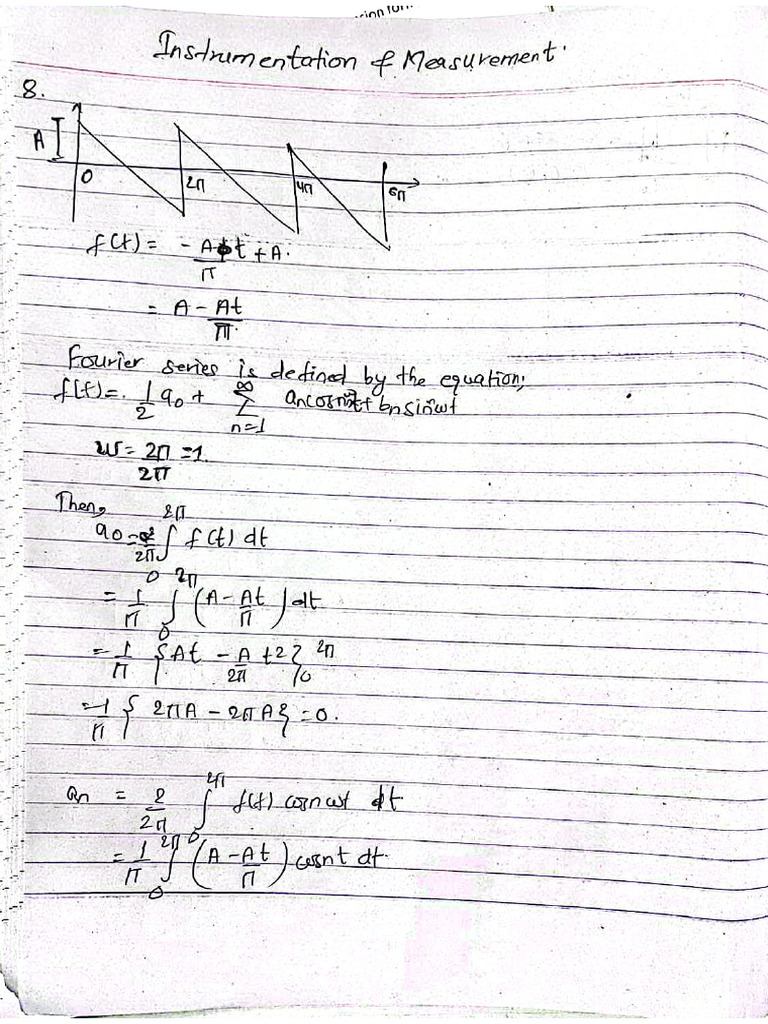 Instrumentation & Measurement.
8.
A
0 2π 4π 6π
f(t) = -A t/π + A.
= A - At/π.
Fourier series is defined by the equation;
f(t) = 1/2 a0 + ∞ Σ n=1 an cos nωt + bn sin nωt
ω = 2π/2π = 1.
Then,
a0 = 2/2π ∫ 0 2π f(t) dt
= 1/π ∫ 0 2π (A - At/π) dt
= 1/π {At - A/2π t2} 0 2π
= 1/π {2πA - 2πA} = 0.
an = 2/2π ∫ 0 2π f(t) cos nωt dt
= 1/π ∫ 0 2π (A - At/π) cos nt dt.